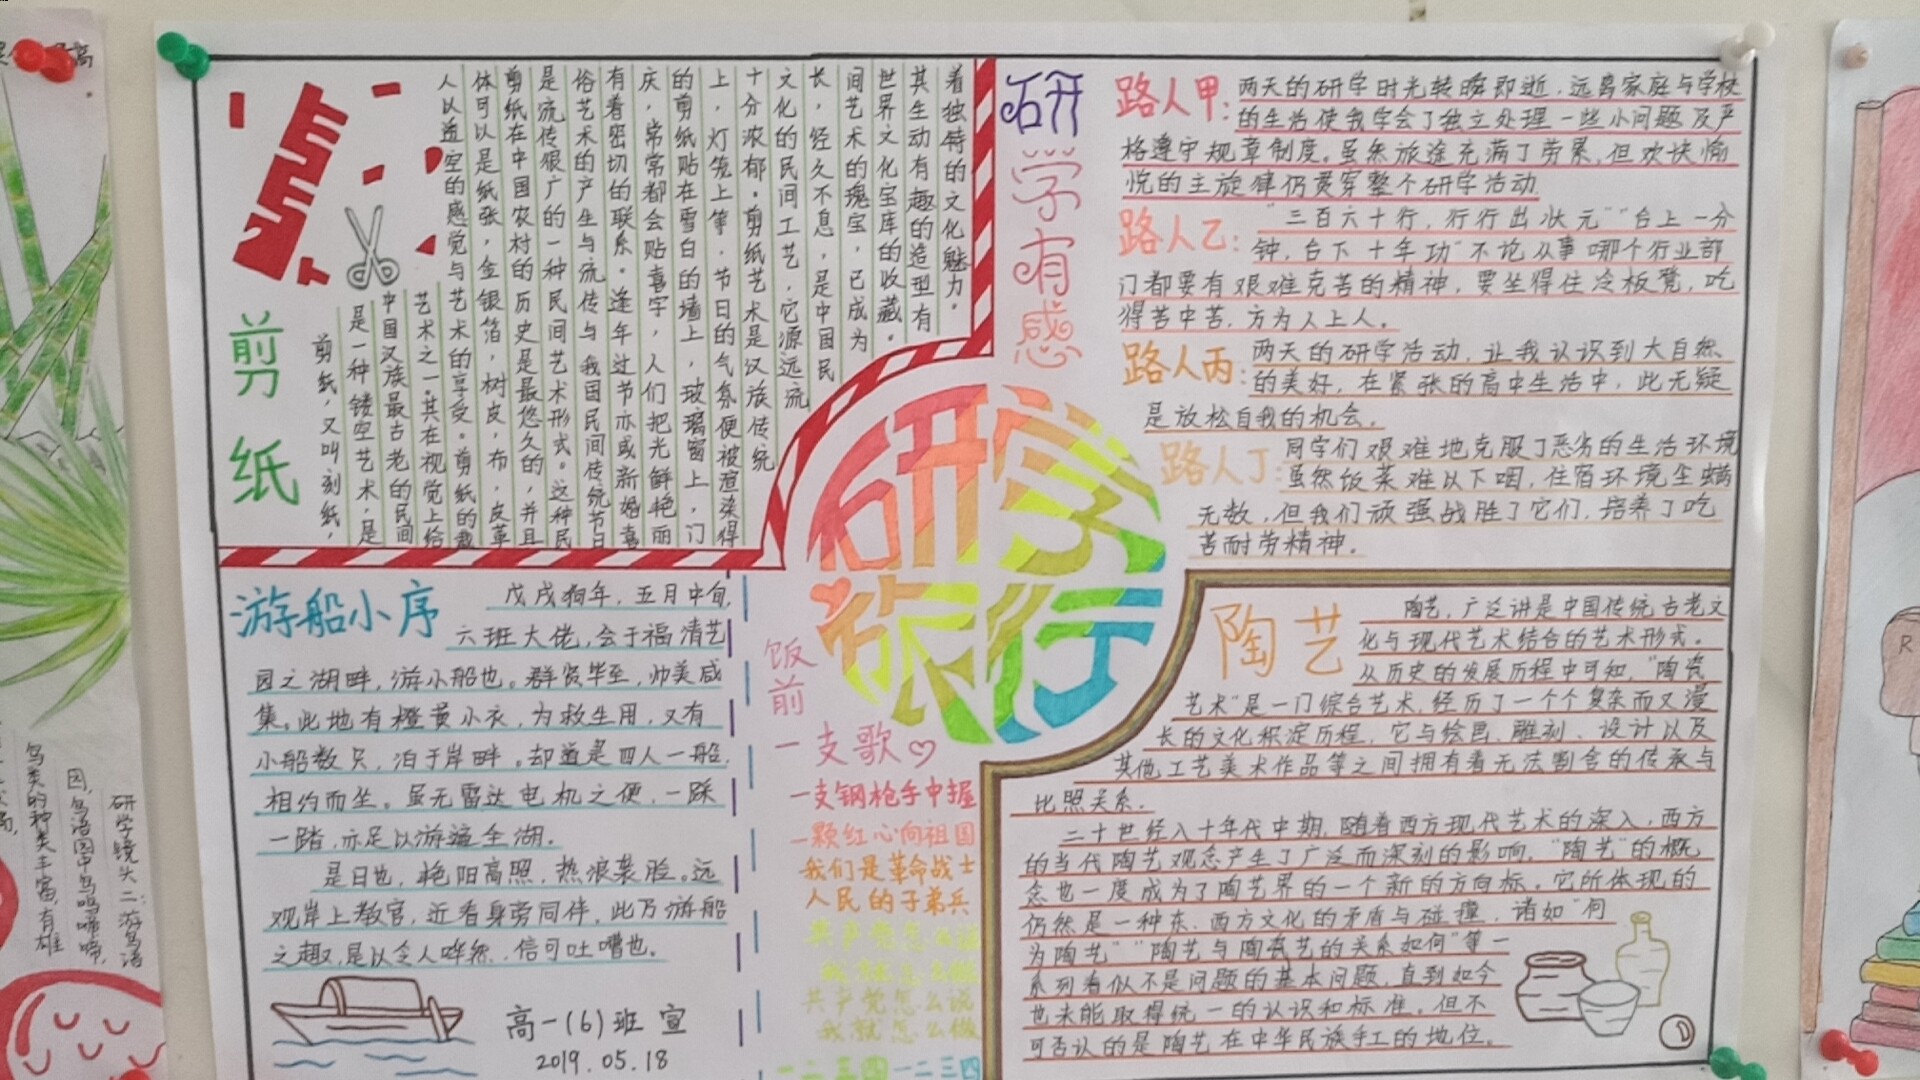 剪纸
剪纸，又叫刻纸，
是一种镂空艺术，是
中国汉族最古老的民间
艺术之一。其在视觉上给
人以透空的感觉与艺术的享受。剪纸的载
体可以是纸张，金银箔，树皮，布，皮革
剪纸在中国农村的历史是最悠久的，并且
是流传狠广的一种民间艺术形式。这种民
俗艺术的产生与流传与我国民间传统节日
有着密切的联系。逢年过节亦或新婚喜
庆，常常都会贴喜字，人们把光鲜艳丽
的剪纸贴在雪白的墙上，玻璃窗上，门
上，灯笼上等，节日的气氛便被渲染得
十分浓郁。剪纸艺术是汉族传统
文化的民间工艺，它源远流
长，经久不息，是中国民
间艺术的瑰宝，已成为
世界文化宝库的收藏。
其生动有趣的造型有
着独特的文化魅力。
研学有感
路人甲：两天的研学时光转瞬即逝，远离家庭与学校
的生活使我学会了独立处理一些小问题及严
格遵守规章制度。虽然旅途充满了劳累，但欢快愉
悦的主旋律仍贯穿整个研学活动
路人乙：“三百六十行，行行出状元”“台上一分
钟，台下十年功”不论从事哪个行业部
门都要有艰难克苦的精神，要坐得住冷板凳，吃
得苦中苦，方为人上人。
路人丙：两天的研学活动，让我认识到大自然
的美好，在紧张的高中生活中，此无疑
是放松自我的机会。
路人丁：同学们艰难地克服了恶劣的生活环境
虽然饭菜难以下咽，住宿环境尘螨
无数，但我们顽强战胜了它们，培养了吃
苦耐劳精神。
研学
旅行
游船小序
戊戌狗年，五月中旬，
六班大佬，会于福清艺
园之湖畔，游小船也。群贤毕至，帅美咸
集。此地有橙黄小衣，为救生用，又有
小船数只，泊于岸畔。却道是四人一船，
相约而坐。虽无雷达电机之便，一踩
一踏，亦足以游遍全湖。
是日也，艳阳高照，热浪袭脸。远
观岸上教官，近看身旁同伴，此乃游船
之趣，是以令人哗然，信可吐嘈也。
高一(6)班 宣
2019.05.18
饭前
一支歌
一支钢枪手中握
一颗红心向祖国
我们是革命战士
人民的子弟兵
共产党怎么说
我就怎么做
共产党怎么说
我就怎么做
一二三四一二三四
陶艺
陶艺，广泛讲是中国传统古老文
化与现代艺术结合的艺术形式。
从历史的发展历程中可知，“陶瓷
艺术”是一门综合艺术，经历了一个个复杂而又漫
长的文化积淀历程，它与绘画、雕刻、设计以及
其他工艺美术作品等之间拥有着无法割舍的传承与
比照关系。
二十世经八十年代中期，随着西方现代艺术的深入，西方
的当代陶艺观念产生了广泛而深刻的影响，“陶艺”的概
念也一度成为了陶艺界的一个新的方向标。它所体现的
仍然是一种东、西方文化的矛盾与碰撞，诸如“何
为陶艺”“陶艺与陶瓷艺的关系如何”等一
系列看似不是问题的基本问题，直到如今
也未能取得统一的认识和标准。但不
可否认的是陶艺在中华民族手工的地位。
研学镜头二：游鸟语
园，鸟语园中鸟鸣啼啼，
鸟类的种类丰富，有雄
R